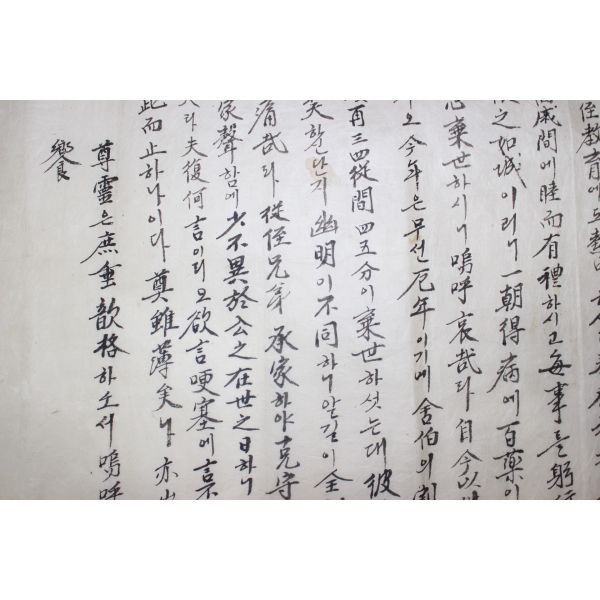 侄教育에도熱
戚間에睦而有禮하시고每事를躬行
之如城이러니一朝得病에百藥이
棄世하시니嗚呼哀哉라自今以
오今年은무선厄年이기에舍伯의
再三四從間四五分이棄世하섯는대彼
矣할난지幽明이不同하니앞길이全
痛哉라從侄兄弟承家하야克守
家聲함에少不異於公之在世之日하니
라夫復何言이리오欲言哽塞에言不
此而止하나이다奠雖薄矣나亦出
尊靈은庶垂歆格하소서嗚呼
饗